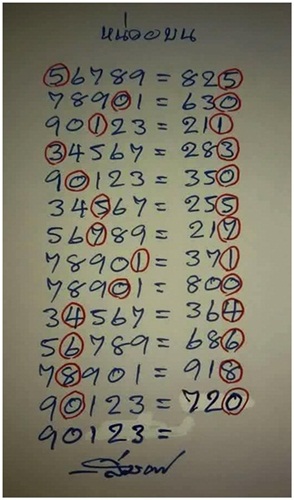 หน่วยบน
56789 = 825
78901 = 630
90123 = 211
34567 = 283
90123 = 350
34567 = 255
56789 = 217
78901 = 371
78901 = 800
34567 = 364
56789 = 686
78901 = 918
90123 = 720
90123 =